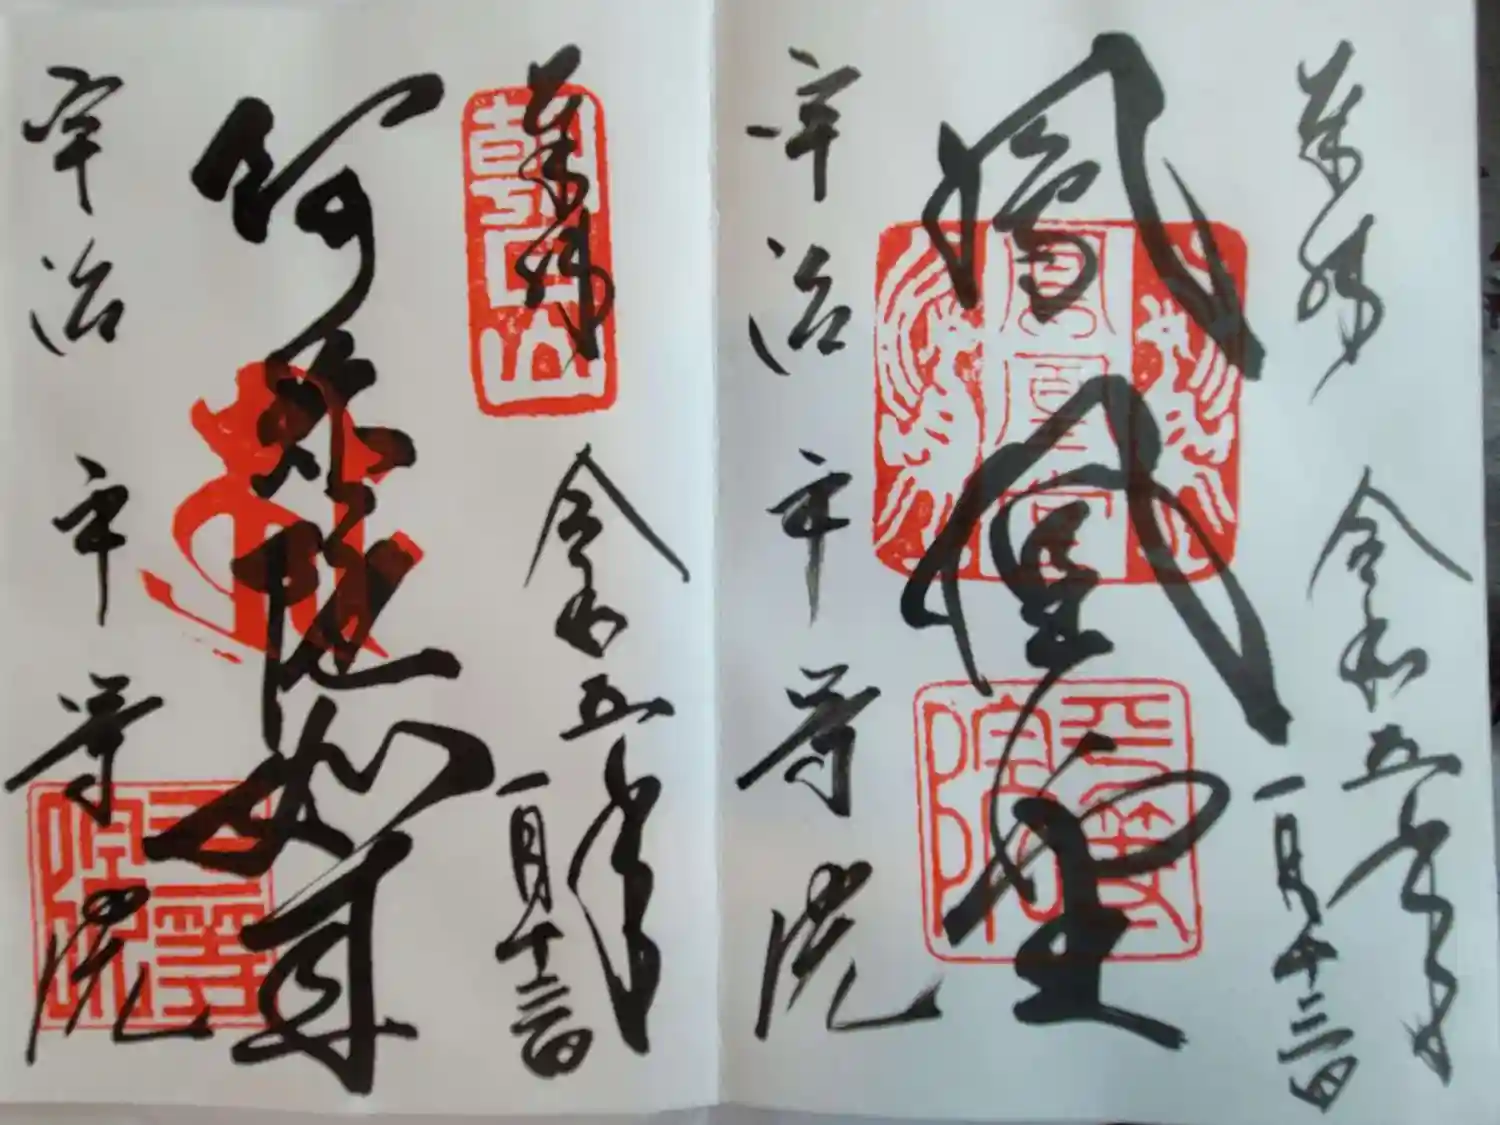 奉拝 令和五年
一月十三日
鳳凰堂
鳳凰堂
平等院
宇治 平等院
奉拝 令和五年
一月十三日
朝日山
阿弥陀如来
宇治 平等院
平等院